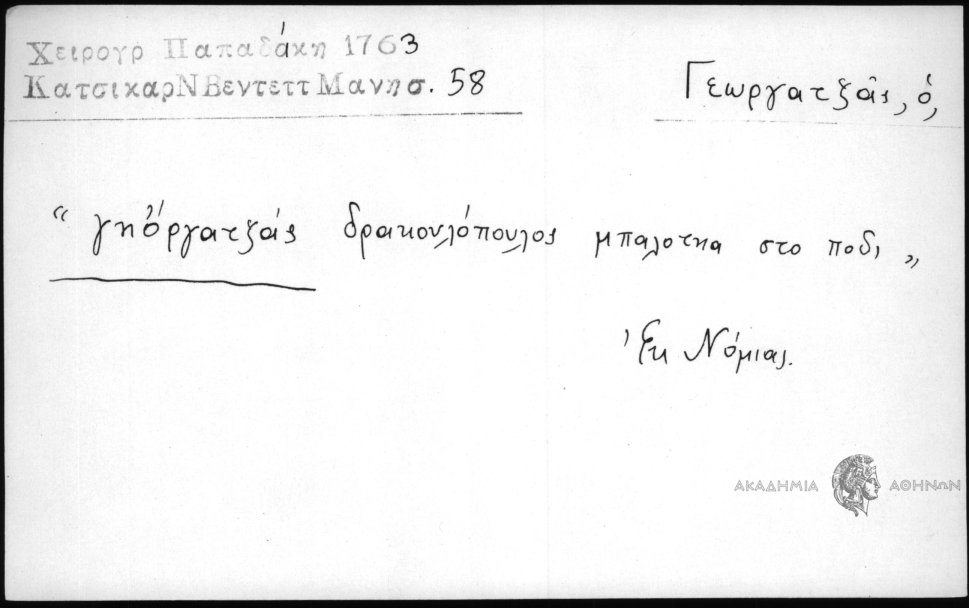 Χειρογρ Παπαδάκη 1763
ΚατσικαρΝΒεντεττΜανησ. 58
Γεωργατζᾶς, ὁ,
“ γηὄργατζάς δρακουλόπουλος μπαλοτια στο ποδι „
Ἐκ Νόμιας.
ΑΚΑΔΗΜΙΑ ΑΘΗΝΩΝ